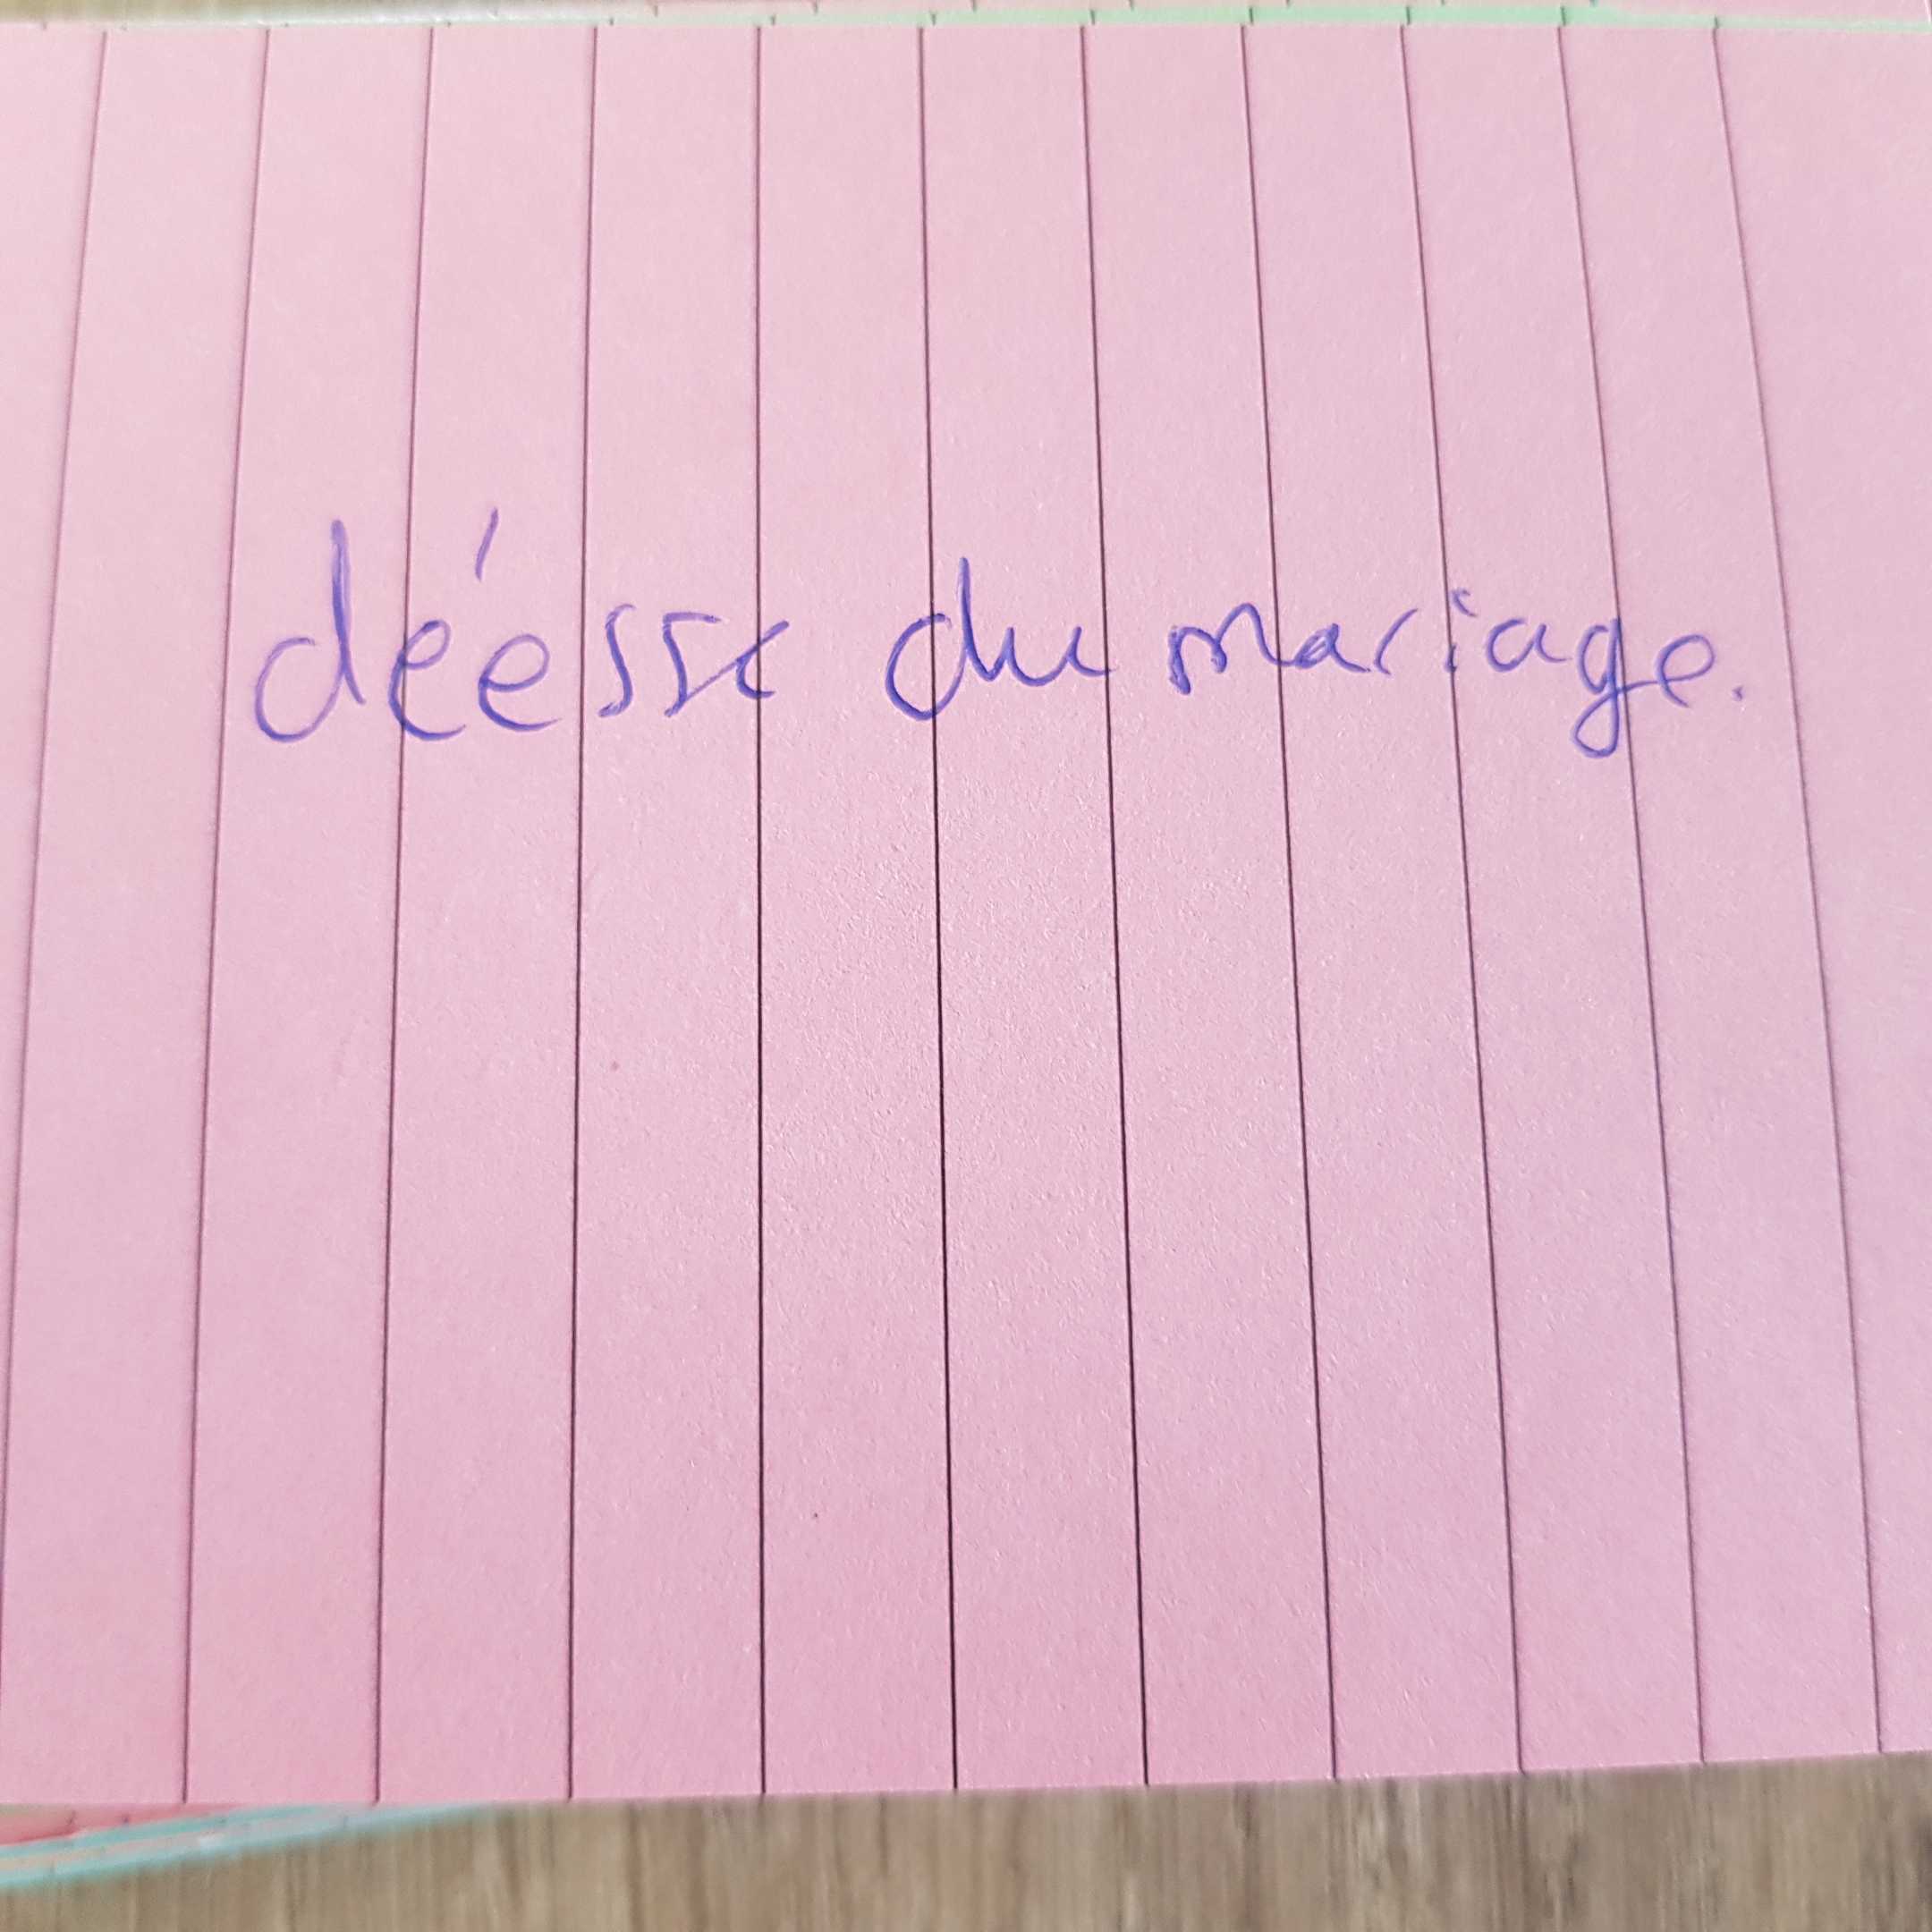 déesse du mariage.